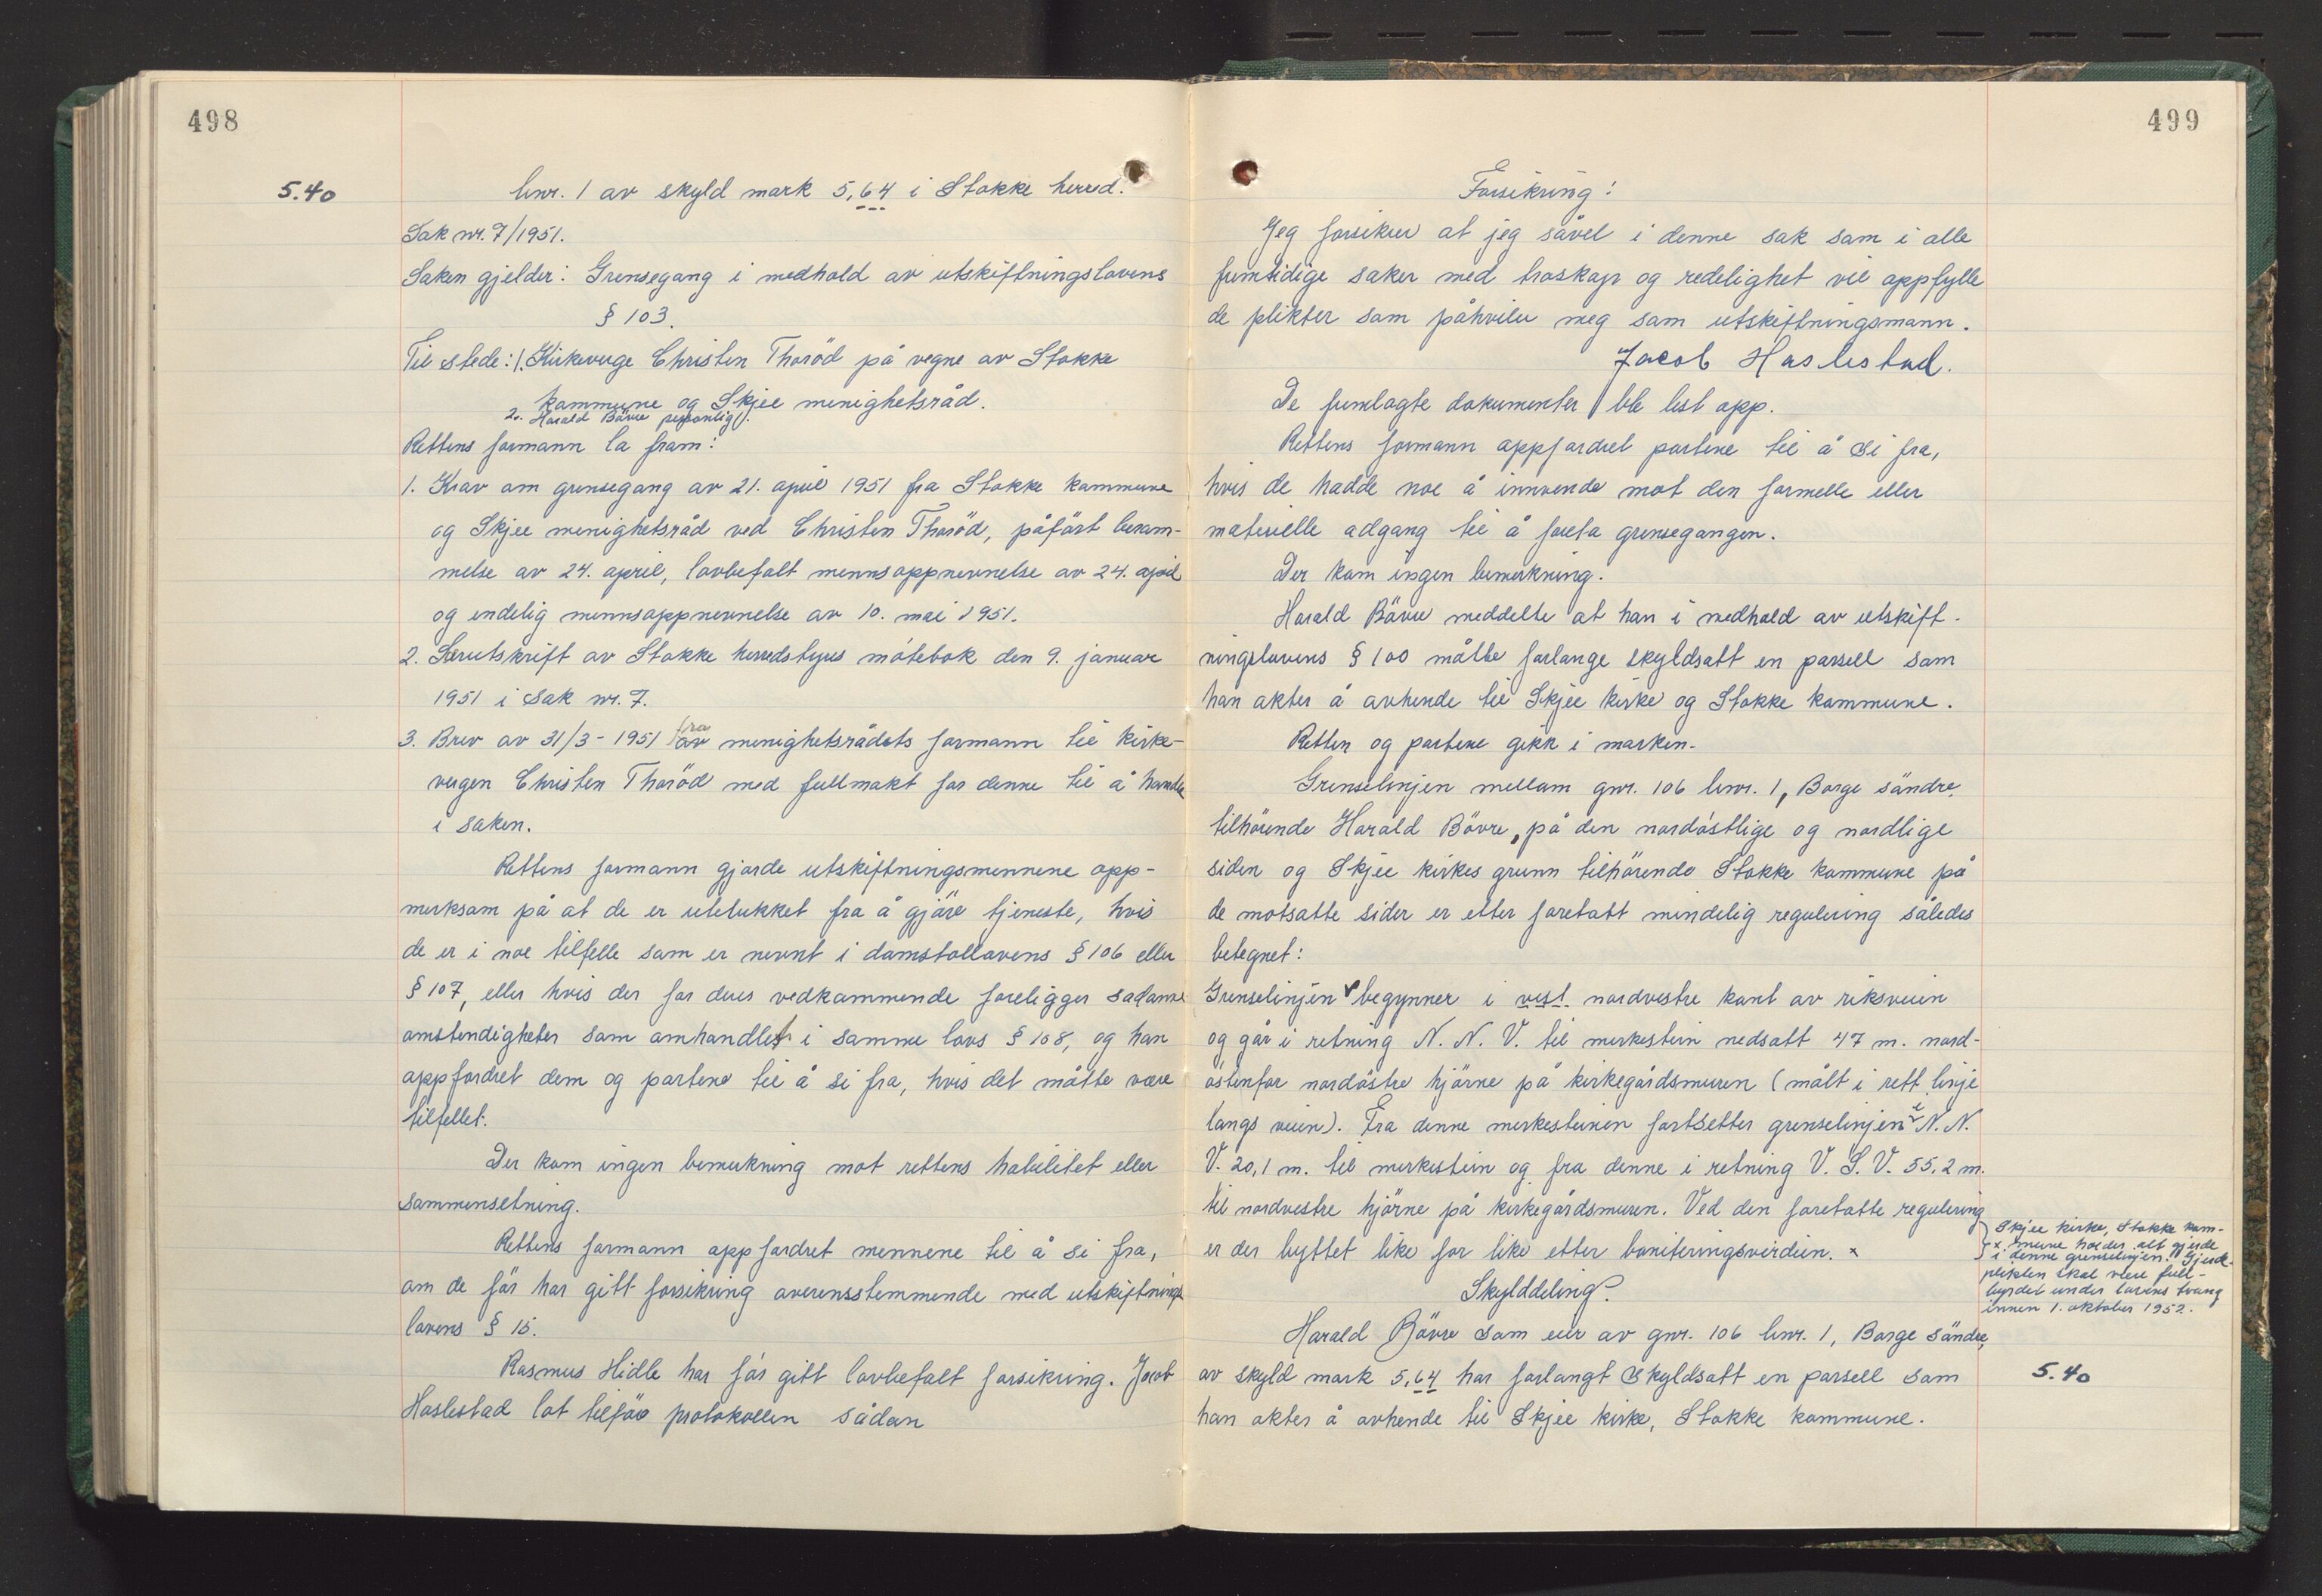 498
5.40
bnr. 1 av skyld mark 5,64 i Stokke herred.
Sak nr. 7/1951.
Saken gjelder: Grensegang i medhold av utskiftningslovens
§ 103.
Til stede: 1. Kirkeverge Christen Thoröd på vegne av Stokke
kommune og Skjee menighetsråd.
2. Harald Bövre personlig.
Rettens formann la fram:
1. Krav om grensegang av 21. april 1951 fra Stokke kommune
og Skjee menighetsråd ved Christen Thoröd, påfört beram-
melse av 24. april, lovbefalt mennsoppnevnelse av 24. april
og endelig mennsoppnevnelse av 10. mai 1951.
2. Særutskrift av Stokke herredstyres mötebok den 9. januar
1951 i sak nr. 7.
3. Brev av 31/3-1951 fra av menighetsrådets formann til kirke-
vergen Christen Thoröd med fullmakt for denne til å handle
i saken.
Rettens formann gjorde utskiftningsmennene opp-
merksom på at de er utelukket fra å gjöre tjeneste, hvis
de er i noe tilfelle som er nevnt i domstollovens § 106 eller
§ 107, eller hvis der for deres vedkommende foreligger sådanne
omstendigheter som omhandlet i samme lovs § 108, og han
oppfordret dem og partene til å si fra, hvis det måtte være
tilfellet.
Der kom ingen bemerkning mot rettens habilitet eller
sammensetning.
Rettens formann oppfordret mennene til å si fra,
om de för har gitt forsikring overensstemmende med utskiftnings
lovens § 15.
Rasmus Hidle har för gitt lovbefalt forsikring. Jacob
Haslestad lot tilföre protokollen sådan
499
Forsikring:
Jeg forsikrer at jeg såvel i denne sak som i alle
fremtidige saker med troskap og redelighet vil oppfylle
de plikter som påhviler meg som utskiftningsmann.
Jacob Haslestad.
De fremlagte dokumenter ble lest opp.
Rettens formann oppfordret partene til å si fra,
hvis de hadde noe å innvende mot den formelle eller
materielle adgang til å foreta grensegangen.
Der kom ingen bemerkning.
Harald Bövre meddelte at han i medhold av utskift-
ningslovens § 100 måtte forlange skyldsatt en parsell som
han akter å avhende til Skjee kirke og Stokke kommune.
Retten og partene gikk i marken.
Grenselinjen mellom gnr. 106 bnr. 1, Borge söndre,
tilhörende Harald Bövre, på den nordöstlige og nordlige
siden og Skjee kirkes grunn tilhörende Stokke kommune på
de motsatte sider er etter foretatt mindelig regulering således
betegnet:
Grenselinjen begynner i vest nordvestre kant av riksveien
og går i retning N. N. V. til merkestein nedsatt 47 m. nord-
östenfor nordöstre hjörne på kirkegårdsmuren (målt i rett linje
langs veien). Fra denne merkesteinen fortsetter grenselinjen i N. N.
V. 20,1 m. til merkestein og fra denne i retning V. S. V. 55,2 m.
til nordvestre hjörne på kirkegårdsmuren. Ved den foretatte regulering
er der byttet like for like etter boniteringsverdien. x
x Skjee kirke, Stokke kom-
mune holder alt gjerde
i denne grenselinjen. Gjerde-
plikten skal være full-
byrdet under lovens tvang
innen 1. oktober 1952.
Skylddeling.
Harald Bövre som eier av gnr. 106 bnr. 1, Borge söndre,
av skyld mark 5,64 har forlangt skyldsatt en parsell som
5.40
han akter å avhende til Skjee kirke, Stokke kommune.